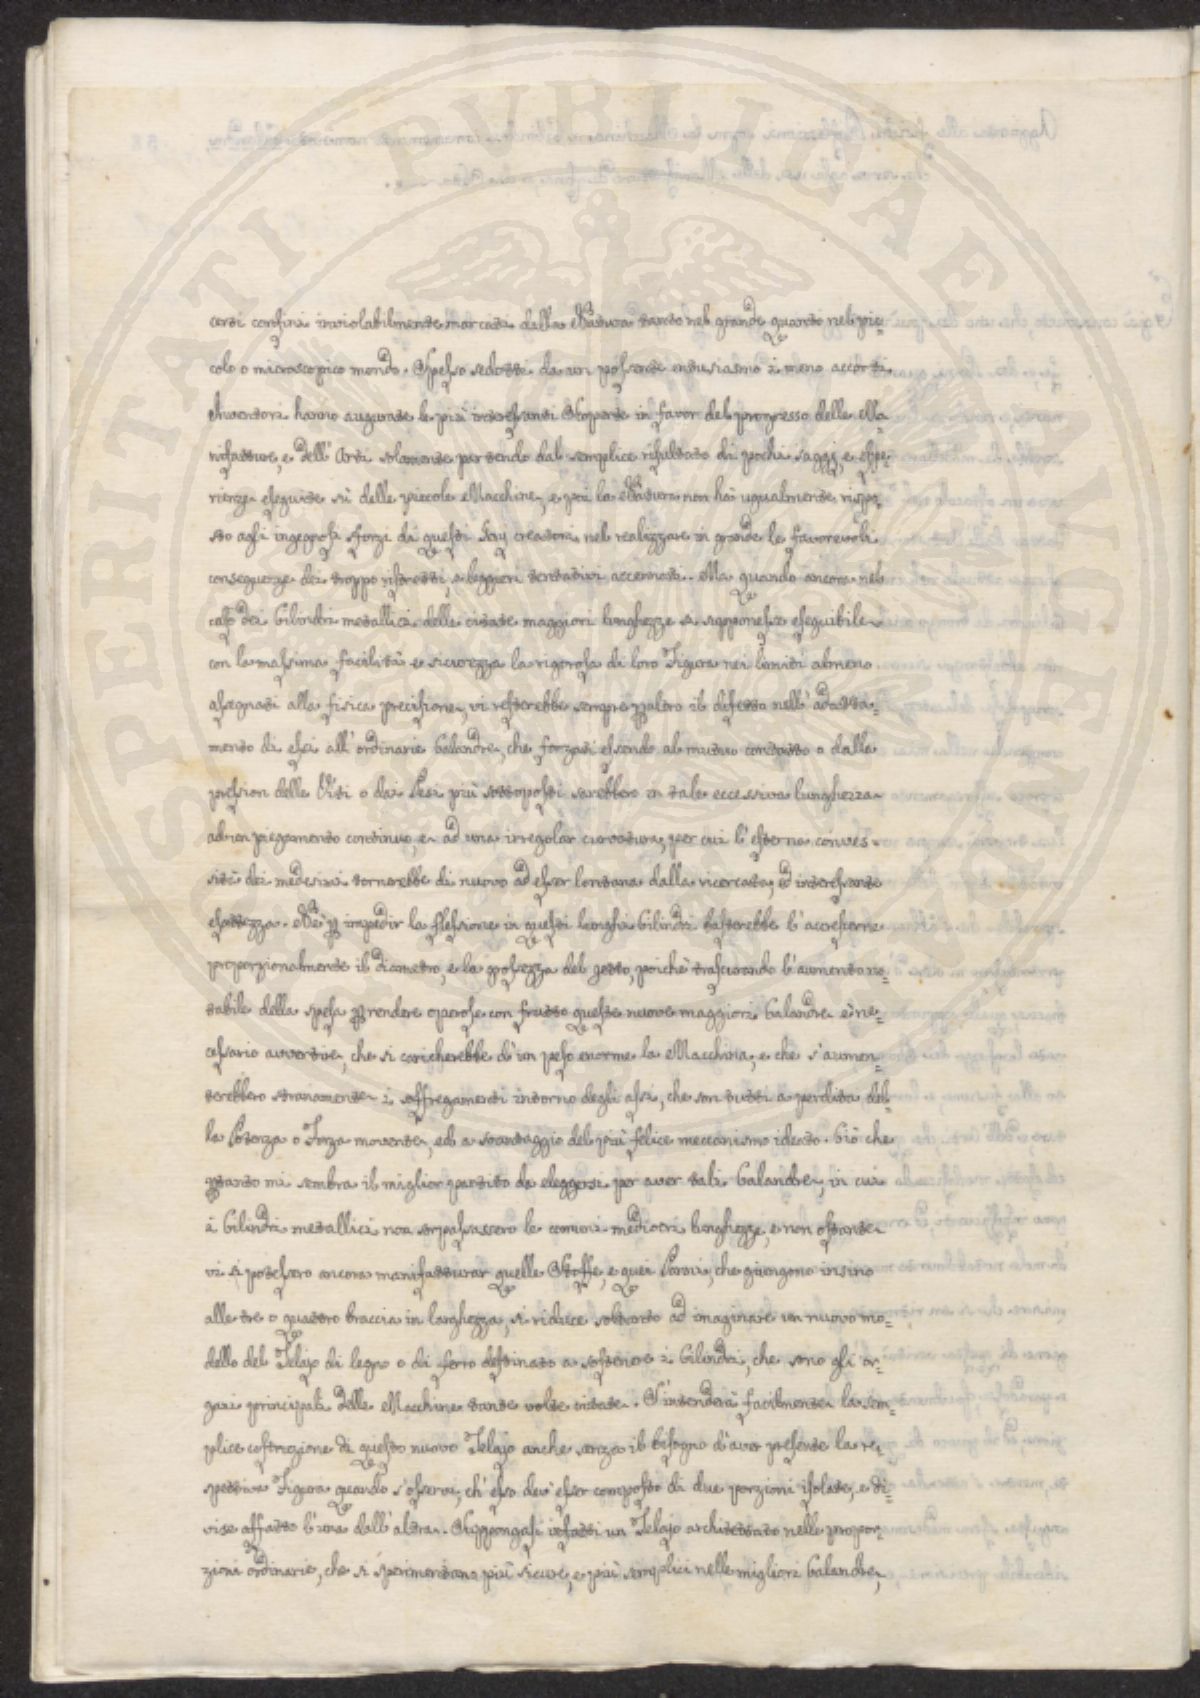 certi confini inviolabilmente marcati dalla Natura tanto nel grande quanto nel pic=
colo o microscopico mondo. Spesso sedotti da un possente entusiasmo i meno accorti
Inventori hanno augurate le più interessanti Scoperte in favor del progresso delle Ma=
nifatture, e dell' Arti solamente partendo dal semplice risultato di pochi saggi, e espe=
rienze eseguite sù delle piccole Macchine, e poi la Natura non há ugualmente rispo=
sto agli ingegnosi sforzi di questi Genj creatori nel realizzare in grande le favorevoli
conseguenze dei troppo ristretti, e leggieri tentativi accennati. Ma quando ancora nel
caso dei Cilindri metallici delle citate maggiori lunghezze si supponesse eseguibile
con la massima facilità e sicurezza la rigorosa di loro Figura nei limiti almeno
assegnati alla fisica precisione, vi resterebbe sempre paltro il difetto nell' adatta=
mento di essi all' ordinarie Calandre, che forzati essendo al mutuo contatto o dalle
pression delle Viti o dai Pesi più sottoposti sarebbero in tale eccessiva lunghezza
ad un piegamento continuo, e ad una irregolar curvatura, per cui l' esterna conves=
sità dei medesimi tornerebbe di nuovo ad esser lontana dalla ricercata, ed interessante
esattezza. Nè p impedir la flessione in questi lunghi Cilindri basterebbe l' accrescerne
proporzionalmente il diametro, e la grossezza del getto, poichè trascurando l' aumento no=
tabile della spesa p rendere operose con frutto queste nuove maggiori Calandre è ne=
cessario avvertire, che si caricherebbe d' un peso enorme la Macchina, e che s' aumen=
terebbero stranamente i soffregamenti intorno degli assi, che son tutti a perdita del=
la Potenza o Forza movente, ed a svantaggio del più felice meccanismo ideato. Ciò che
ptanto mi sembra il miglior partito da eleggersi per aver tali Calandre, in cui
i Cilindri metallici non sorpassassero le comuni mediocri lunghezze, e non ostante
vi si potessero ancora manifatturar quelle Stoffe, e quei Panni, che giungono insino
alle tre o quattro braccia in larghezza, si riduce soltanto ad imaginare un nuovo mo=
dello del Telajo di legno o di ferro destinato a sostenere i Cilindri, che sono gli or=
gani principali delle Macchine tante volte citate. S' intenderà facilmente la sem=
plice costruzione di questo nuovo Telajo anche senza il bisogno d' aver presente la re=
spettiva Figura quando s' osservi, ch' esso dev' esser composto di due porzioni isolate, e di=
vise affatto l' una dall' altra. Suppongasi infatti un Telajo architettato nelle propor=
zioni ordinarie, che si sperimentano più sicure, e più semplici nelle migliori Calandre,